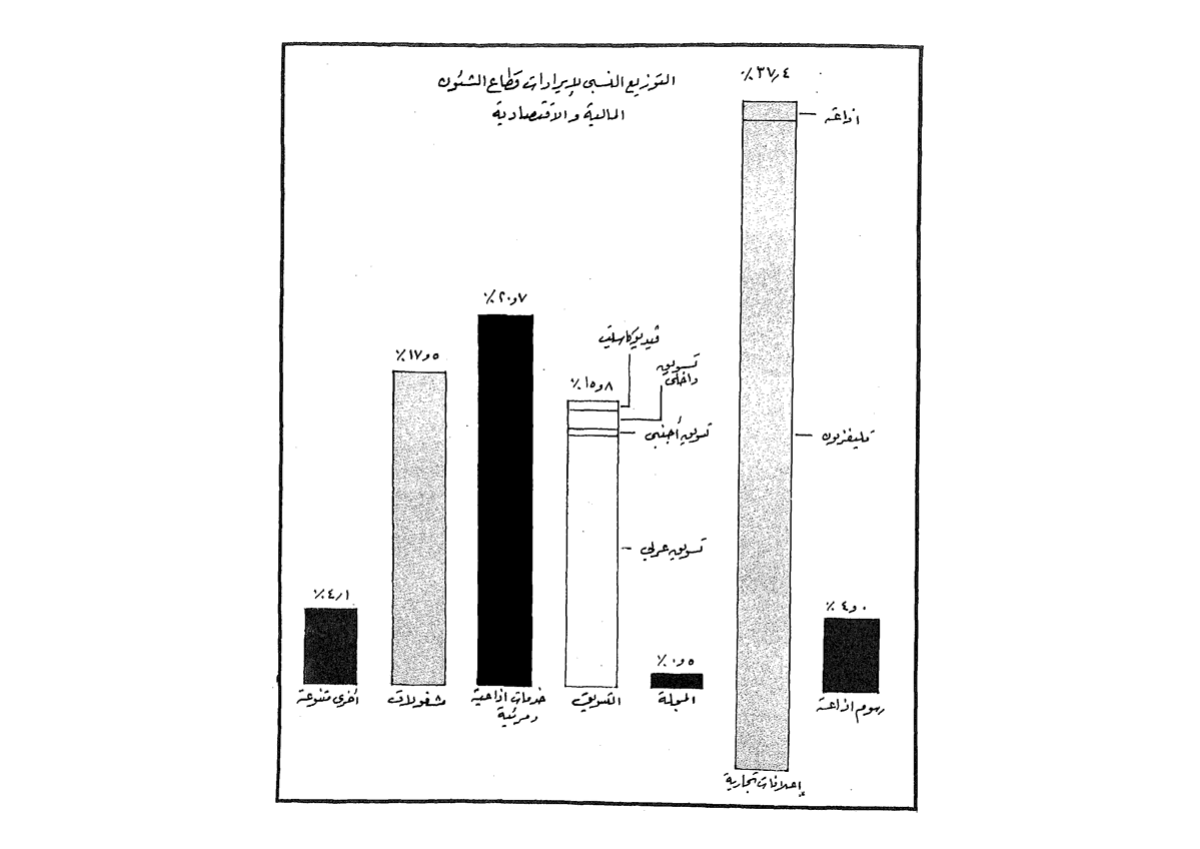 التوزيع النسبى لإيرادات قطاع الشئون
المالية والاقتصادية
٣٧٫٤ ٪
اذاعة
تليفزيون
إعلانات تجارية
٤٫٠ ٪
رسوم اذاعة
٠٫٥ ٪
المجلة
١٥٫٨ ٪
ڤيديو كاسيت
تسويق
داخلى
تسويق أجنبى
تسويق عربى
التسويق
٢٠٫٧ ٪
خدمات اذاعية
ومرئية
١٧٫٥ ٪
مشغولات
٤٫١ ٪
أخرى متنوعة